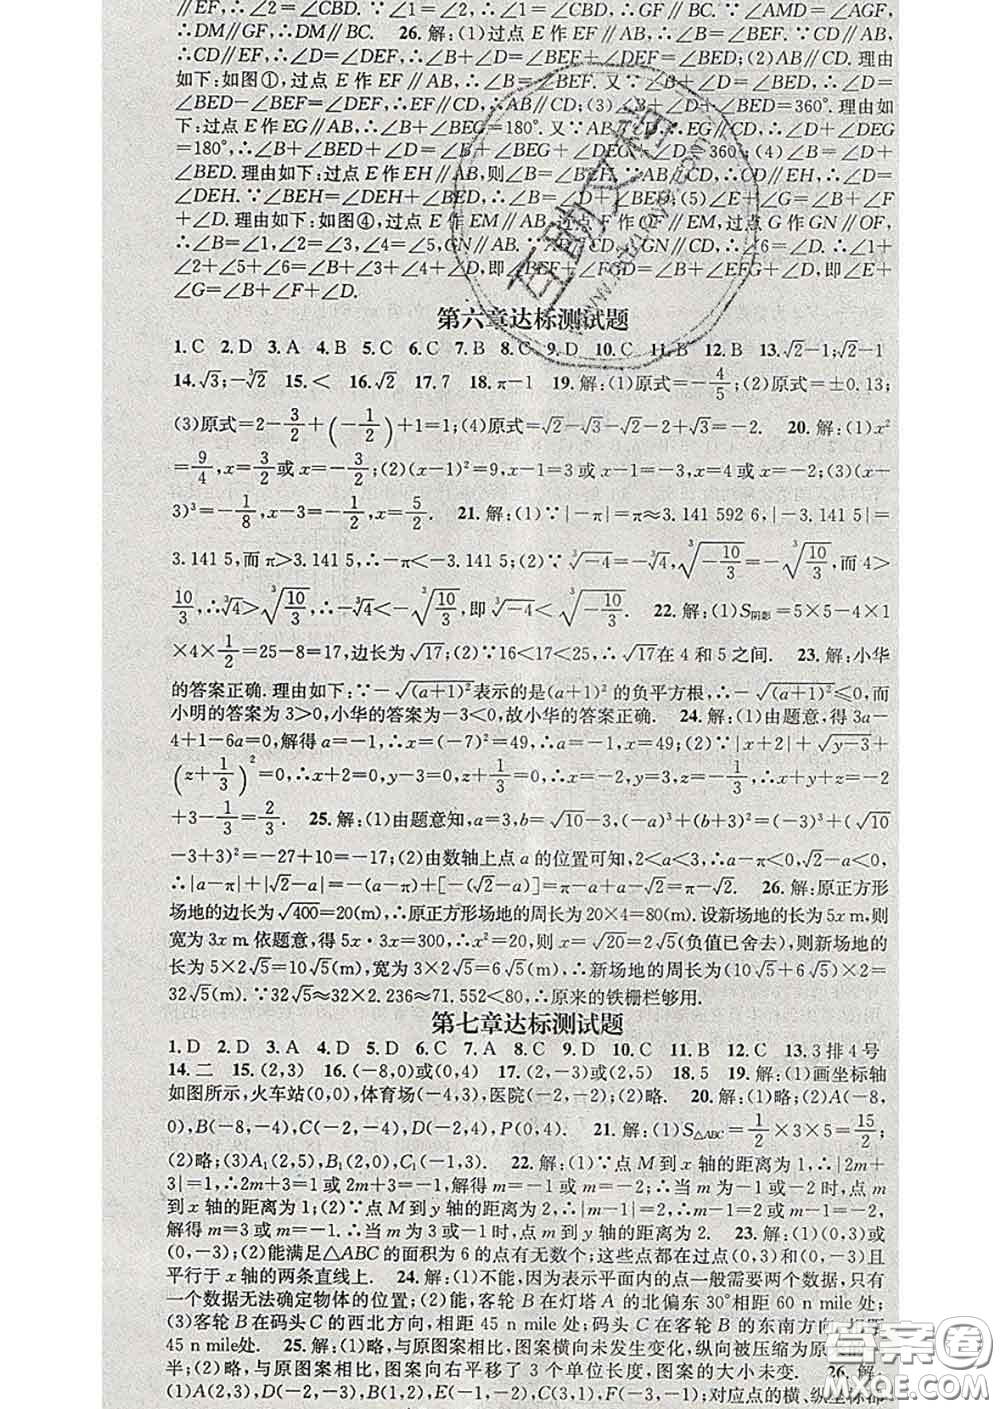 ∥EF,∴∠2=∠CBD. ∵∠2=∠1,∴∠1=∠CBD,∴GF∥BC. ∵∠AMD=∠AGF,
∴DM∥GF,∴DM∥BC. 26. 解:(1)过点 E 作 EF∥AB,∴∠B=∠BEF. ∵AB∥CD,
∴CD∥EF,∴∠D=∠DEF,∴∠B+∠D=∠BEF+∠DEF=∠BED;(2)AB∥CD. 理由
如下:如图①,过点 E 作 EF∥AB,∴∠B=∠BEF. 又∵∠B+∠D=∠BED,∴∠D=
∠BED-∠BEF=∠DEF,∴EF∥CD,∴AB∥CD;(3)∠B+∠D+∠BED=360°. 理由如
下:过点 E 作 EG∥AB,∴∠B+∠BEG=180°. 又∵AB∥CD,∴EG∥CD,∴∠D+∠DEG
=180°,∴∠B+∠BED+∠D=∠B+∠BEG+∠DEG+∠D=360°;(4)∠B=∠D+
∠BED. 理由如下:过点 E 作 EH∥AB,则∠B=∠BEH. ∵AB∥CD,∴CD∥EH,∴∠D=
∠DEH. ∵∠BEH=∠DEH+∠BED,∴∠B=∠D+∠BED;(5)∠E+∠G=∠B+∠F
+∠D. 理由如下:如图④,过点 E 作 EM∥AB,过点 F 作 OF∥EM,过点 G 作 GN∥OF,
∴∠B=∠1,∠2=∠3,∠4=∠5,GN∥AB. ∵AB∥CD,∴GN∥CD,∴∠6=∠D. ∴∠1+
∠2+∠5+∠6=∠B+∠3+∠4+∠D,即∠BEF+∠FGD=∠B+∠EFG+∠D,即∠E+
∠G=∠B+∠F+∠D.
第六章达标测试题
1. C 2. D 3. A 4. B 5. C 6. C 7. B 8. C 9. D 10. C 11. B 12. B 13. √2-1;√2-1
14. √3;-∛2 15. < 16. √2 17. 7 18. π-1 19. 解:(1)原式=-4/5;(2)原式=±0.13;
(3)原式=2-3/2+(-1/2)+1=1;(4)原式=√2-√3-√2-2+√3=-2. 20. 解:(1)x²
=9/4,x=3/2或x=-3/2;(2)(x-1)²=9,x-1=3或x-1=-3,x=4或x=-2;(3)(x-
3)³=-1/8,x-3=-1/2,x=5/2. 21. 解:(1)∵|-π|=π≈3.141 592 6,|-3.141 5|=
3.141 5,而π>3.141 5,∴-π<-3.141 5;(2)∵∛-4=-∛4,∛(-10/3)=-∛(10/3),而4>
10/3,∴∛4>∛(10/3),∴-∛4<-∛(10/3),即∛-4<∛(-10/3). 22. 解:(1)S阴影=5×5-4×1
×4×1/2=25-8=17,边长为√17;(2)∵16<17<25,∴√17在 4 和 5 之间. 23. 解:小华
的答案正确. 理由如下:∵-√(a+1)²表示的是(a+1)²的负平方根,∴-√(a+1)²≤0,而
小明的答案为 3>0,小华的答案为-3<0,故小华的答案正确. 24. 解:(1)由题意,得 3a-
4+1-6a=0,解得 a=-1,∴x=(-7)²=49,∴a=-1,x=49;(2)∵|x+2|+√y-3+
(z+1/3)²=0,∴x+2=0,y-3=0,z+1/3=0,∴x=-2,y=3,z=-1/3,∴x+y+z=-2
+3-1/3=2/3. 25. 解:(1)由题意知,a=3,b=√10-3,(-a)³+(b+3)²=(-3)³+(√10
-3+3)²=-27+10=-17;(2)由数轴上点 a 的位置可知,2<a<3,∴a-π<0,√2-a<0,
∴|a-π|+|√2-a|=(π-a)+[-(√2-a)]=π-a-√2+a=π-√2. 26. 解:原正方形
场地的边长为√400=20(m),∴原正方形场地的周长为 20×4=80(m). 设新场地的长为 5x m,则
宽为 3x m. 依题意,得 5x·3x=300,∴x²=20,则 x=√20=2√5(负值已舍去),则新场地的
长为 5×2√5=10√5(m),宽为 3×2√5=6√5(m),∴新场地的周长为(10√5+6√5)×2=
32√5(m). ∵32√5≈32×2.236≈71.552<80,∴原来的铁栅栏够用.
第七章达标测试题
1. D 2. D 3. A 4. D 5. D 6. C 7. A 8. C 9. D 10. C 11. B 12. C 13. 3 排 4 号
14. 二 15. (2,3) 16. (-8,0)或(0,4) 17. (2,-3)或(2,5) 18. 5 19. 解:(1)画坐标轴
如图所示,火车站(0,0),体育场(-4,3),医院(-2,-2);(2)略. 20. 解:(1)略;(2)A(-8,
0),B(-8,-4),C(-2,-4),D(-2,4),P(0,4). 21. 解:(1)S△ABC=1/2×3×5=15/2;
(2)略;(3)A₁(2,5),B₁(2,0),C₁(-1,3). 22. 解:(1)∵点 M 到 x 轴的距离为 1,∴|2m+
3|=1,∴2m+3=1 或 2m+3=-1,解得 m=-1 或 m=-2,∴当 m 为-1 或-2 时,点 m
到 x 轴的距离为 1;(2)∵点 M 到 y 轴的距离为 2,∴|m-1|=2,∴m-1=2 或 m-1=-2,
解得 m=3 或 m=-1. ∴当 m 为 3 或-1 时,点 m 到 y 轴的距离为 2. 23. 解:(1)(0,3)或
(0,-3);(2)能满足△ABC 的面积为 6 的点有无数个;这些点都在过点(0,3)和(0,-3)且
平行于 x 轴的两条直线上. 24. 解:(1)不能,因为表示平面内的点一般需要两个数据,只有
一个数据无法确定物体的位置;(2)能,客轮 B 在灯塔 A 的北偏东 30°相距 60 n mile处;
(3)客轮 B 在码头 C 的西北方向,相距 45 n mile处;码头 C 在客轮 B 的东南方向,相距
45 n mile处. 25. 解:(1)略,与原图案相比,图案横向未发生变化,纵向被压缩为原来的一
半;(2)略,与原图案相比,图案向右平移了 3 个单位长度,图案的大小未变. 26. 解:
(1)A(2,3),D(-2,-3),B(1,2),E(-1,-2),C(3,1),F(-3,-1);对应点的横、纵坐标都
答案圈
MXQE.COM